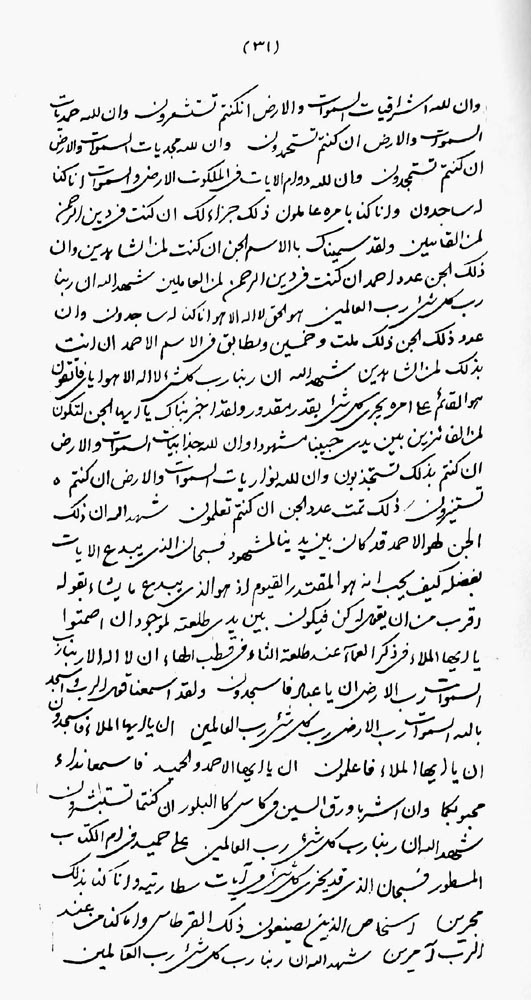 (٣١)
وان لله اشراقيات السموات والارض ان كنتم تستشعرون وان لله حمديات
السموات والارض ان كنتم تستحمدون وان لله مجديات السموات والارض
ان كنتم تستمجدون وان لله دوام الايات فى الملكوت الارض والسموات انا كنا
له ساجدون وانا كنا بامره عاملون ذلك جزاء لك ان كنت فى دين الرحمن
لمن القاسين ولقد سميناك بالاسم الجن ان كنت لمن الشاهدين وان
ذلك الجن عدد احمد ان كنت فى دين الرحمن لمن العاملين شهد الله ان ربنا
رب كل شئ رب العالمين هو الحق لا اله الا هو انا كنا له ساجدون وان
عدد ذلك الجن ذلك ملت وخمسين ويطابق فى الاسم الاحمد ان انت
بذلك لمن الشاهدين شهد الله ان ربنا رب كل شئ لا اله الا هو اياى فاتقون
هو القائم على امره يجرى كل شئ بقدر مقدور ولقد اخبرناك يا ايها الجن لتكون
لمن الفائزين بين يدى حبيبنا مشهودا وان لله جذابيات السموات والارض
ان كنتم بذلك تستجذبون وان لله نواريات السموات والارض ان كنتم
تستنيرون ذلك تمت عدد الجن ان كنتم تعلمون شهد الله ان ذلك
الجن لهو الاحمد قد كان بين يدينا لمشهود فسبحان الذى يبدع الايات
بفضله كيف يحب انه هو المقتدر القيوم اذ هو الذى يبدع ما يشاء بقوله
اقرب من ان يقول له كن فيكون بين يدى طلعته لموجود ان اصمتوا
يا ايها الملاء فى ذكر العماء عند طلعة الثناء فى قطب الهاء ان لا اله الا ربنا رب
السموات رب الارض ان يا عباد فاسجدون ولقد اسمعنا قول الرب واسجد
بالله السموات رب الارض رب كل شئ رب العالمين ان يا ايها الملاء فاسجدون
ان يا ايها الملاء فاعلمون ان يا ايها الاحمد والحميد فاسمعا نداء
محبوبكما وان اشربا ورق السين فى كاس كا البلور ان كنتما تستبشرون
شهد الله ان ربنا رب كل شئ رب العالمين على حميد فى ام الكتاب
المسطور فسبحان الذى قد يجرى كل شئ فى آيات سطارتيه وانا كنا بذلك
مجرين اشخاص الذين يصنعون ذلك القرطاس واما كنا من عند
الرب آخرين شهد الله ان ربنا رب كل شئ رب العالمين